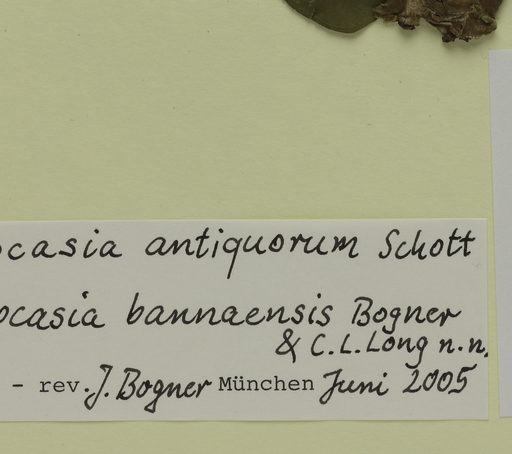 ocasia antiquorum Schott
ocasia bannaensis Bogner
& C.L. Long n.n.
- rev. J. Bogner München Juni 2005